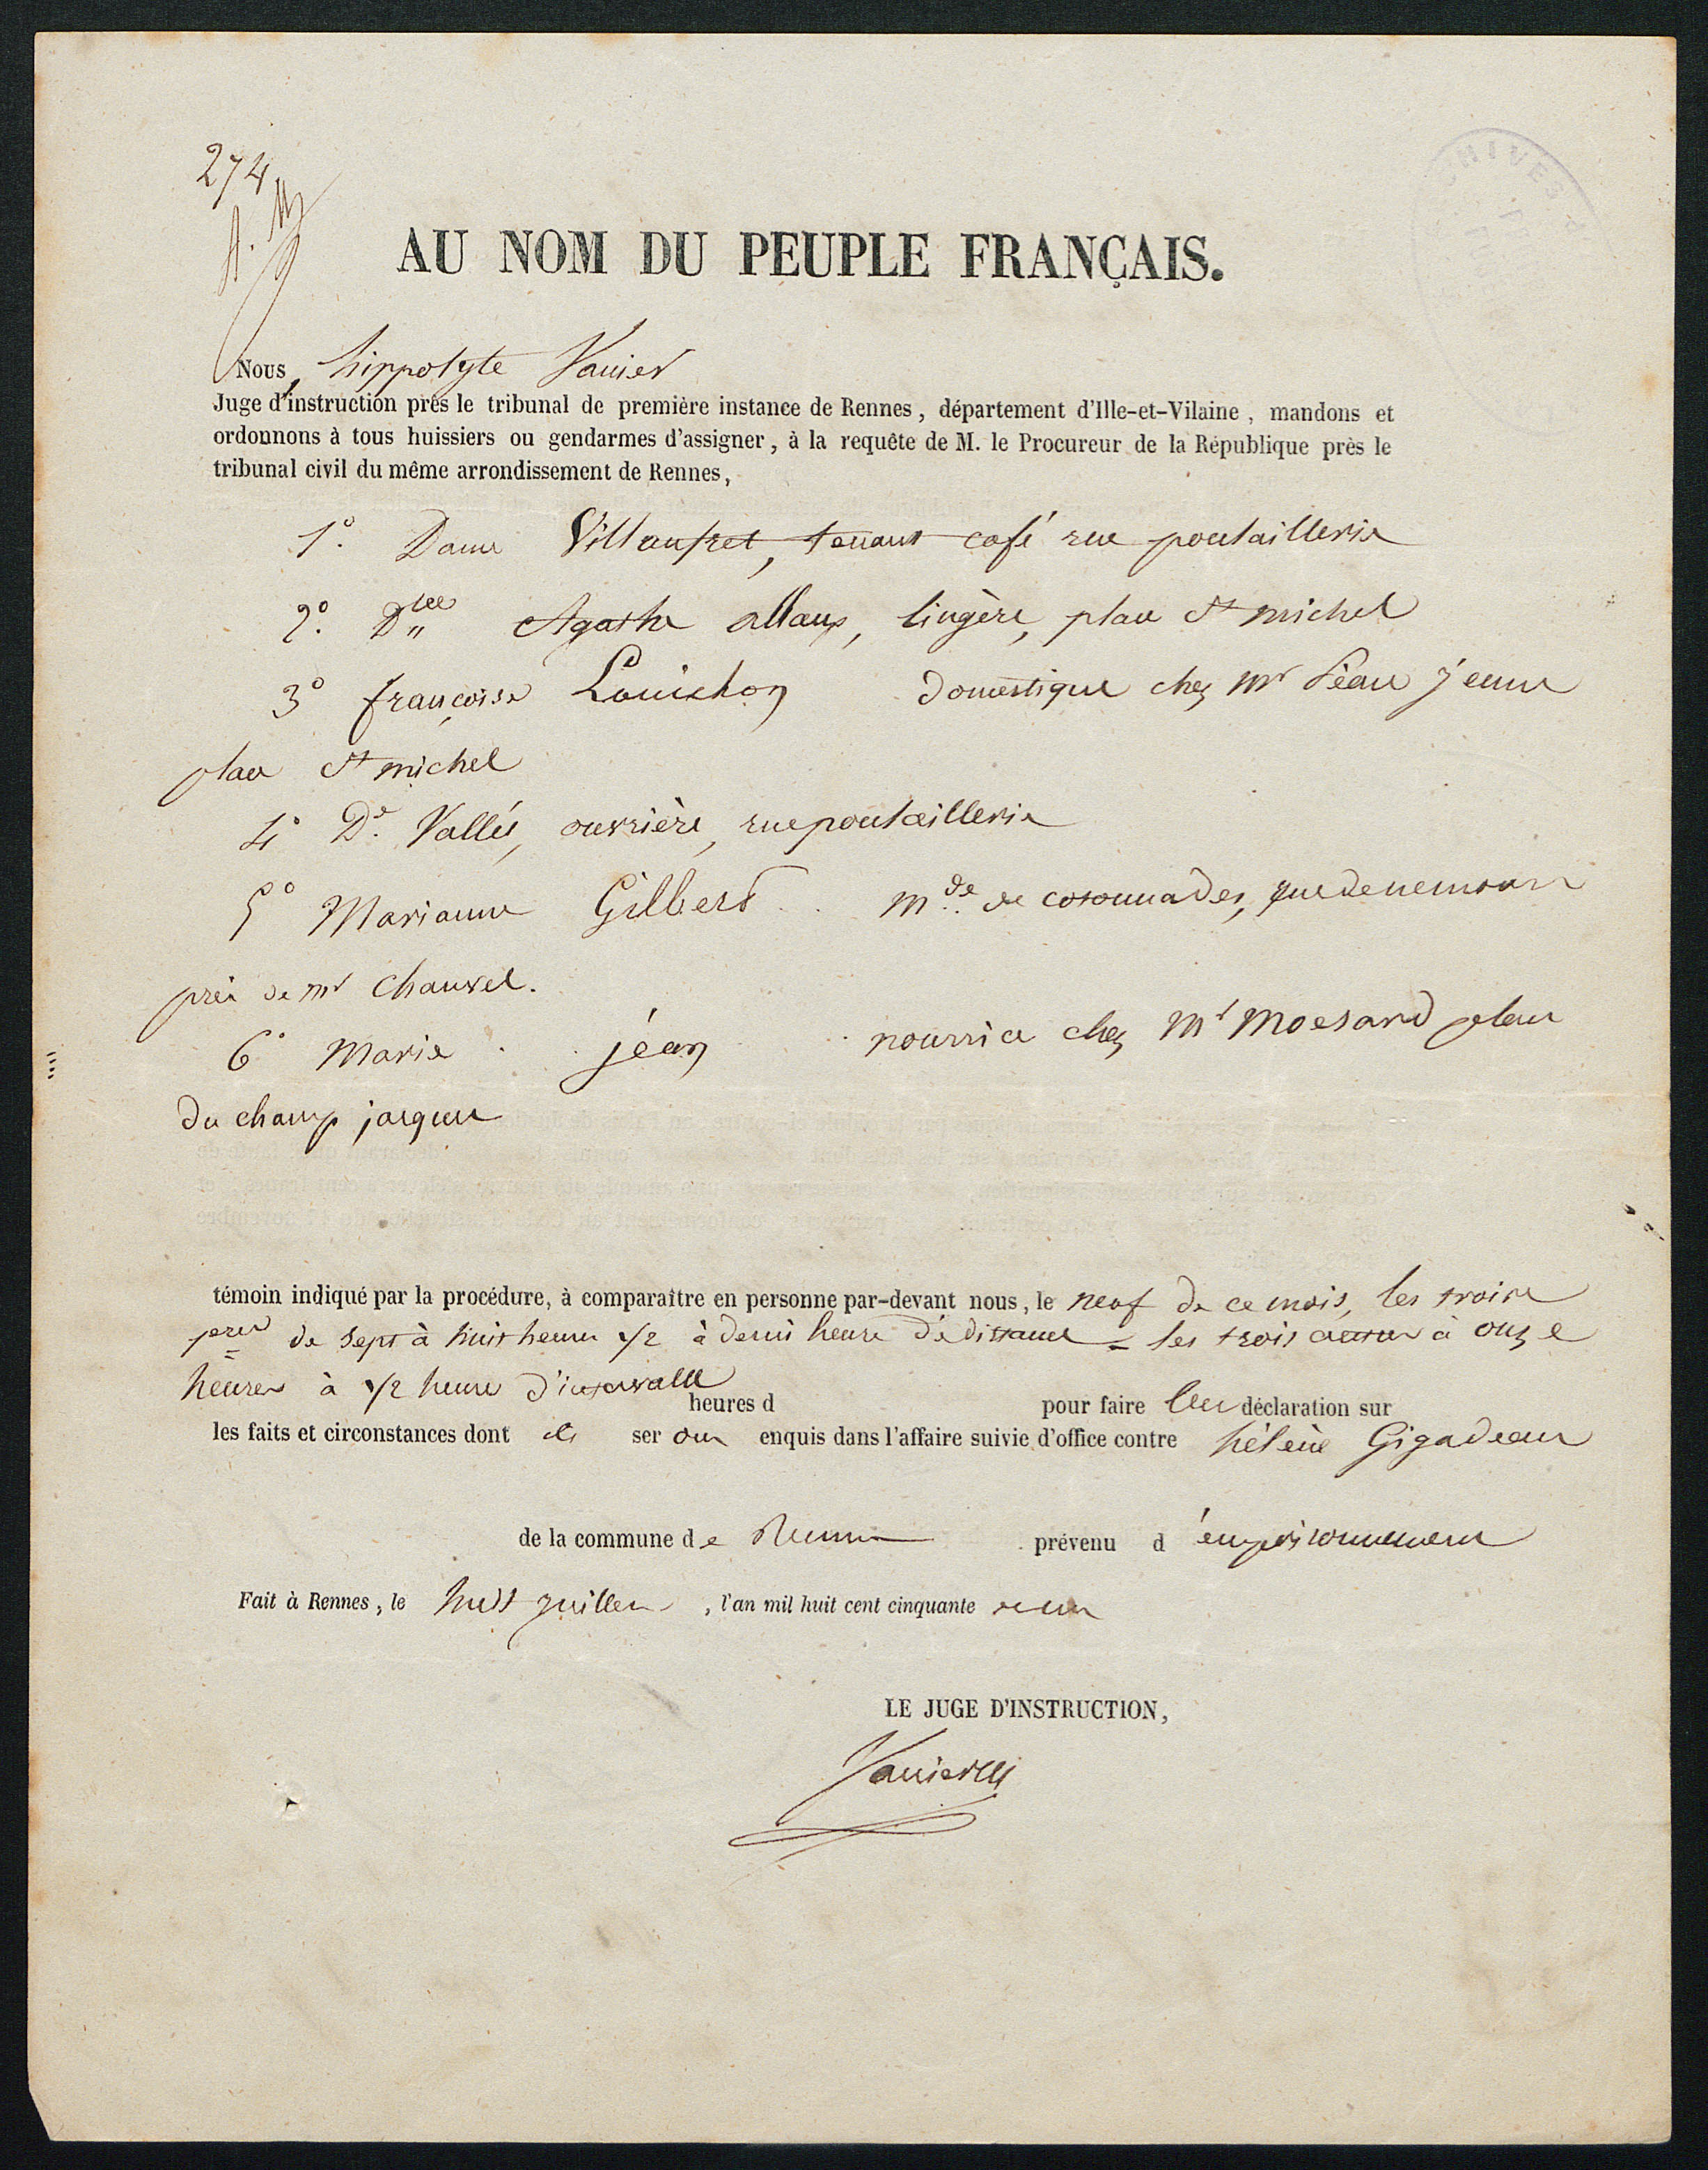 274
AU NOM DU PEUPLE FRANÇAIS.
Nous, hippolyte Vanier
Juge d'instruction près le tribunal de première instance de Rennes, département d'Ille-et-Vilaine, mandons et
ordonnons à tous huissiers ou gendarmes d'assigner, à la requête de M. le Procureur de la République près le
tribunal civil du même arrondissement de Rennes,
1° Dame Villaufret, tenant café rue poulaillerie
2° Dlle Agathe allaux, lingère, place St michel
3° françoise Louichon domestique chez Mr Séau jeune
place St michel
4° De Vallée, ouvrière, rue poulaillerie
5° Marianne Gilbert mde de cotonnades, rue de nemours
près de mr Chauvel.
6° Marie jean nourrice chez Mr place
du champ jacquet
témoin indiqué par la procédure, à comparaître en personne par-devant nous, le neuf de ce mois, les trois
de sept à huit heures 1/2 à demi heure de distance - les trois autres à onze
heures à 1/2 heure d'intervalle
heures d pour faire leur déclaration sur
les faits et circonstances dont ils seront enquis dans l'affaire suivie d'office contre hélène Gigadeau
de la commune de Rennes prévenu d empoisonnement
Fait à Rennes, le huit juillet, l'an mil huit cent cinquante et un
LE JUGE D'INSTRUCTION,